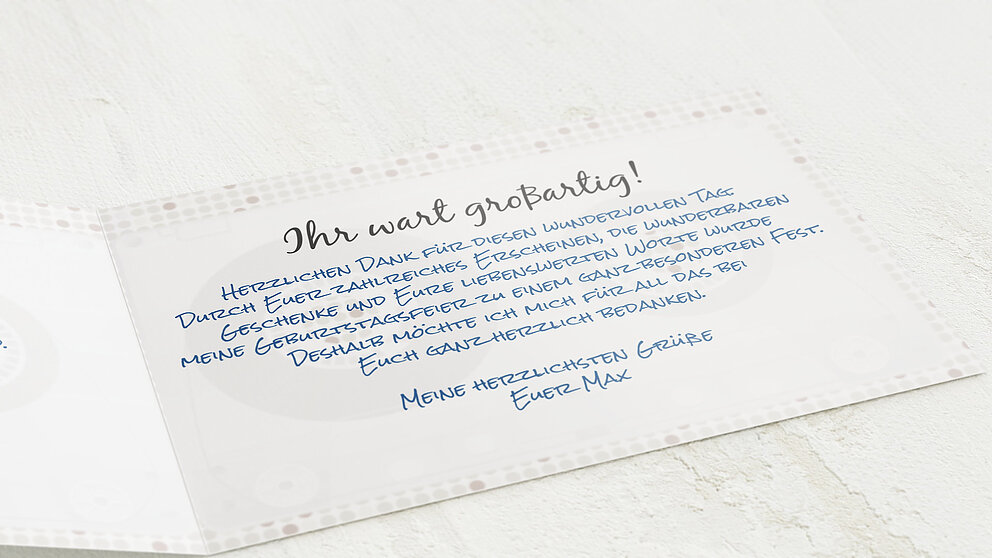 Ihr wart großartig!
Herzlichen Dank für diesen wundervollen Tag.
Durch Euer zahlreiches Erscheinen, die wunderbaren
Geschenke und Eure liebenswerten Worte wurde
meine Geburtstagsfeier zu einem ganz besonderen Fest.
Deshalb möchte ich mich für all das bei
Euch ganz herzlich bedanken.
Meine herzlichsten Grüße
Euer Max